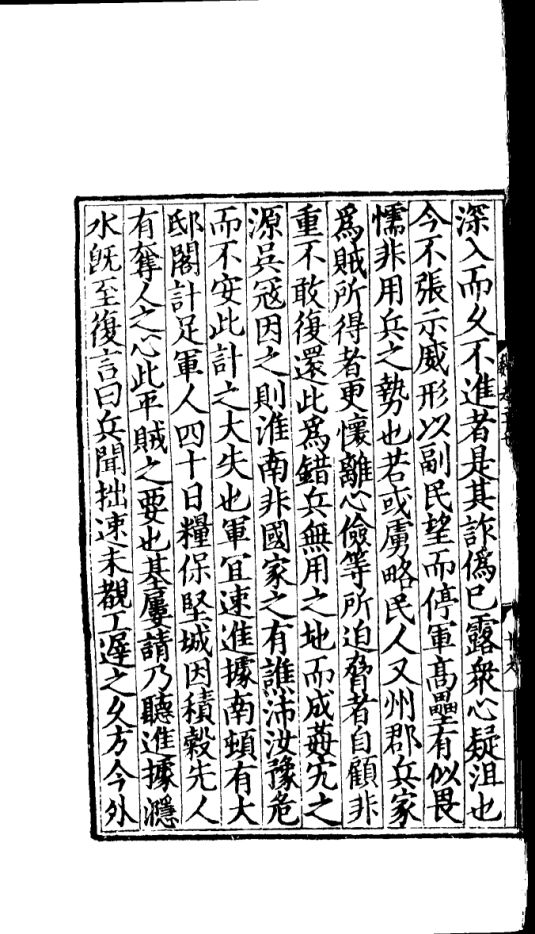 深入而久不進者是其詐僞已露衆心疑沮也
今不張示威形以副民望而停軍高壘有似畏
懦非用兵之勢也若或虜略民人又州郡兵家
爲賊所得者更懷離心儉等所迫脅者自顧非
重不敢復還此爲錯兵無用之地而成姦宄之
源吳寇因之則淮南非國家之有譙沛汝豫危
而不安此計之大失也軍宜速進據南頓有大
邸閣計足軍人四十日糧保堅城因積穀先人
有奪人之心此平賊之要也基屢請乃聽進據㶏
水旣至復言曰兵聞拙速未覩工遲之久方今外